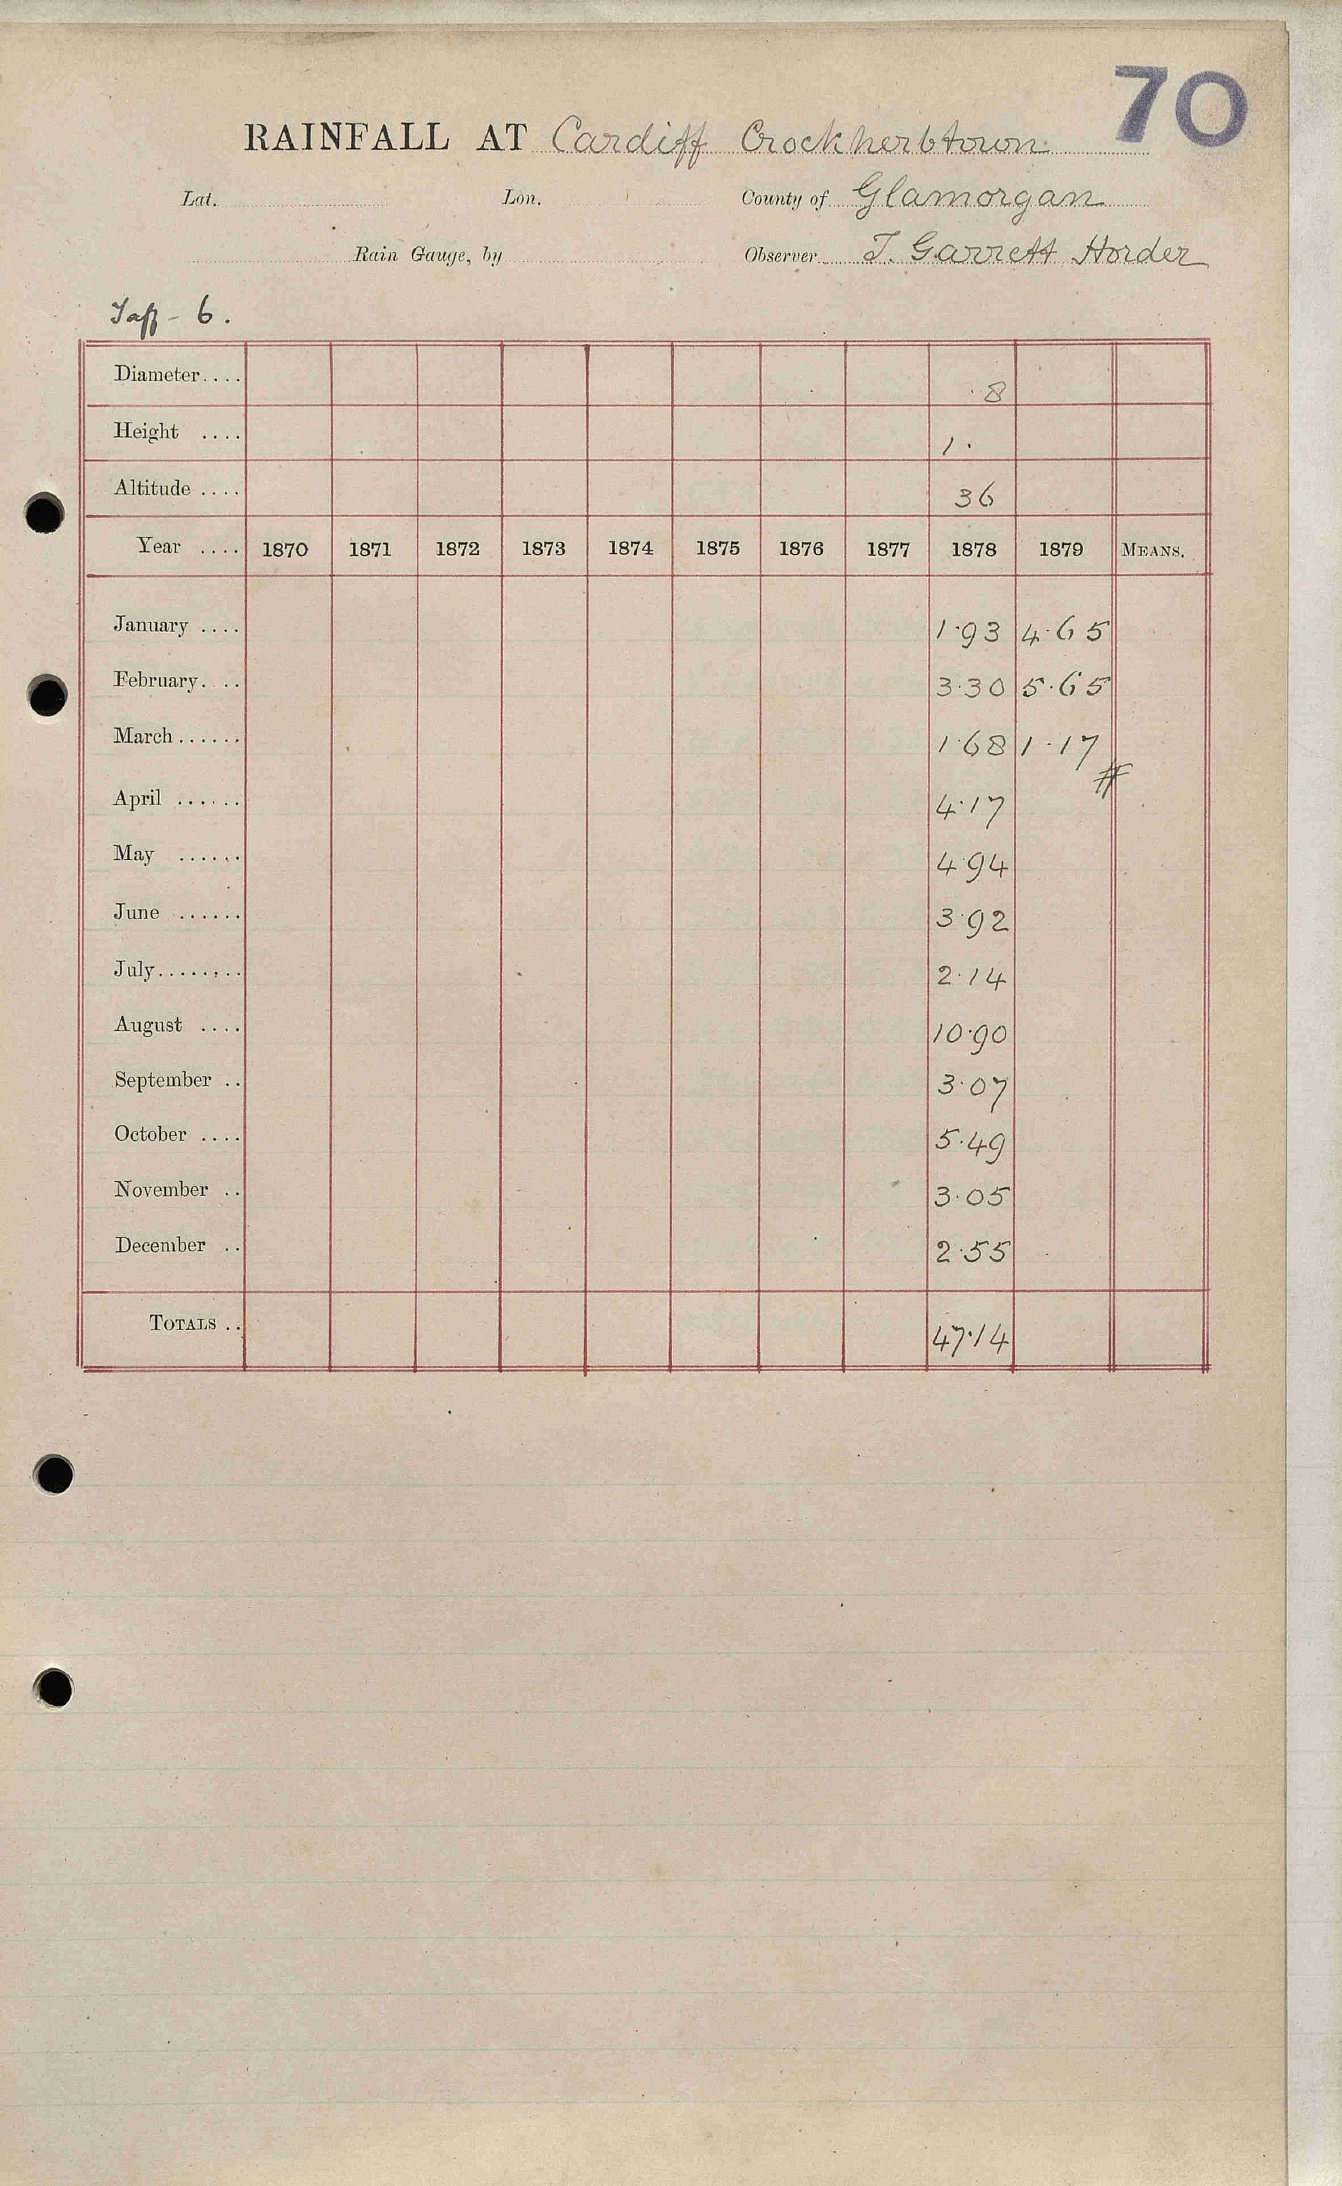 70
RAINFALL AT Cardiff Crockherbtown
Lat. Lon. County of Glamorgan
Rain Gauge, by Observer T. Garrett Horder
Taff - 6.
Diameter.... 8
Height .... 1.
Altitude .... 36
Year .... 1870 1871 1872 1873 1874 1875 1876 1877 1878 1879 MEANS.
January .... 1.93 4.65
February. .. 3.30 5.65
March ...... 1.68 1.17
#
April ...... 4.17
May ...... 4.94
June ...... 3.92
July........ 2.14
August .... 10.90
September .. 3.07
October .... 5.49
November .. 3.05
December .. 2.55
TOTALS .. 47.14